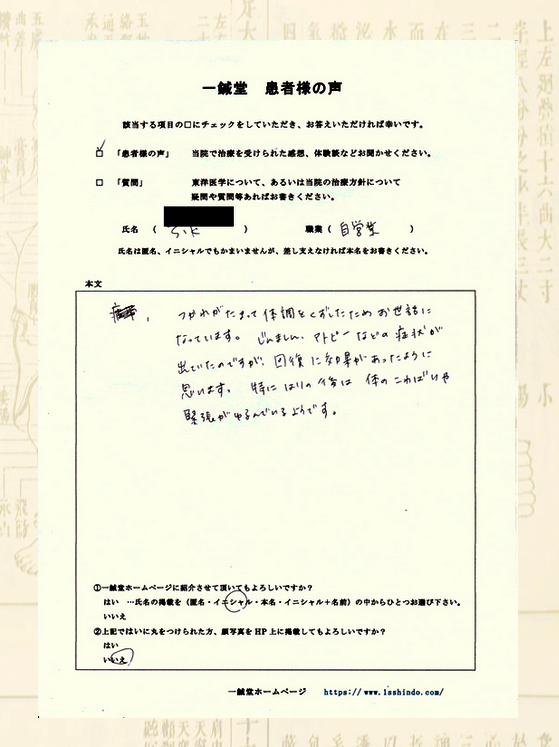 一鍼堂 患者様の声
該当する項目の□にチェックをしていただき、お答えいただければ幸いです。
□ 「患者様の声」 当院で治療を受けられた感想、体験談などお聞かせください。
□ 「質問」 東洋医学について、あるいは当院の治療方針について
疑問や質問等あればお書きください。
氏名 ( S.K ) 職業 ( 自営業 )
氏名は匿名、イニシャルでもかまいませんが、差し支えなければ本名をお書きください。
本文
つかれがたまって体調をくずしたためお世話に
なっています。 じんましん、アトピーなどの症状が
出ていたのですが、回復に効果があったように
思います。 特にはりの後は 体のこわばりや
緊張がゆるんでいるようです。
①一鍼堂ホームページに紹介させて頂いてもよろしいですか?
はい …氏名の掲載を(匿名・イニシャル・本名・イニシャル+名前)の中からひとつお選び下さい。
いいえ
②上記ではいに丸をつけられた方、顔写真を HP 上に掲載してもよろしいですか?
はい
いいえ
一鍼堂ホームページ https://www.1sshindo.com/